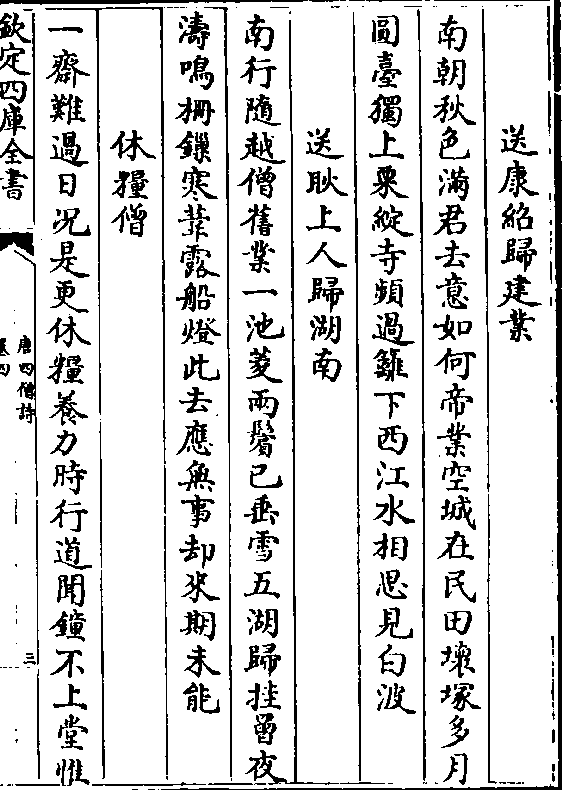 送康紹歸建業
南朝秋色滿君去意如何帝業空城在民田壞塚多月
圓臺獨上栗綻寺頻過籬下西江水相思見白波
送耿上人歸湖南
南行隨越僧舊業一池菱兩鬢已垂雪五湖歸挂罾夜
濤鳴柵鏁寒葦露船燈此去應無事却來期未能
休糧僧
一齋難過日况是更休糧養力時行道聞鐘不上堂惟
欽定四庫全書
唐四僧詩
卷四
三